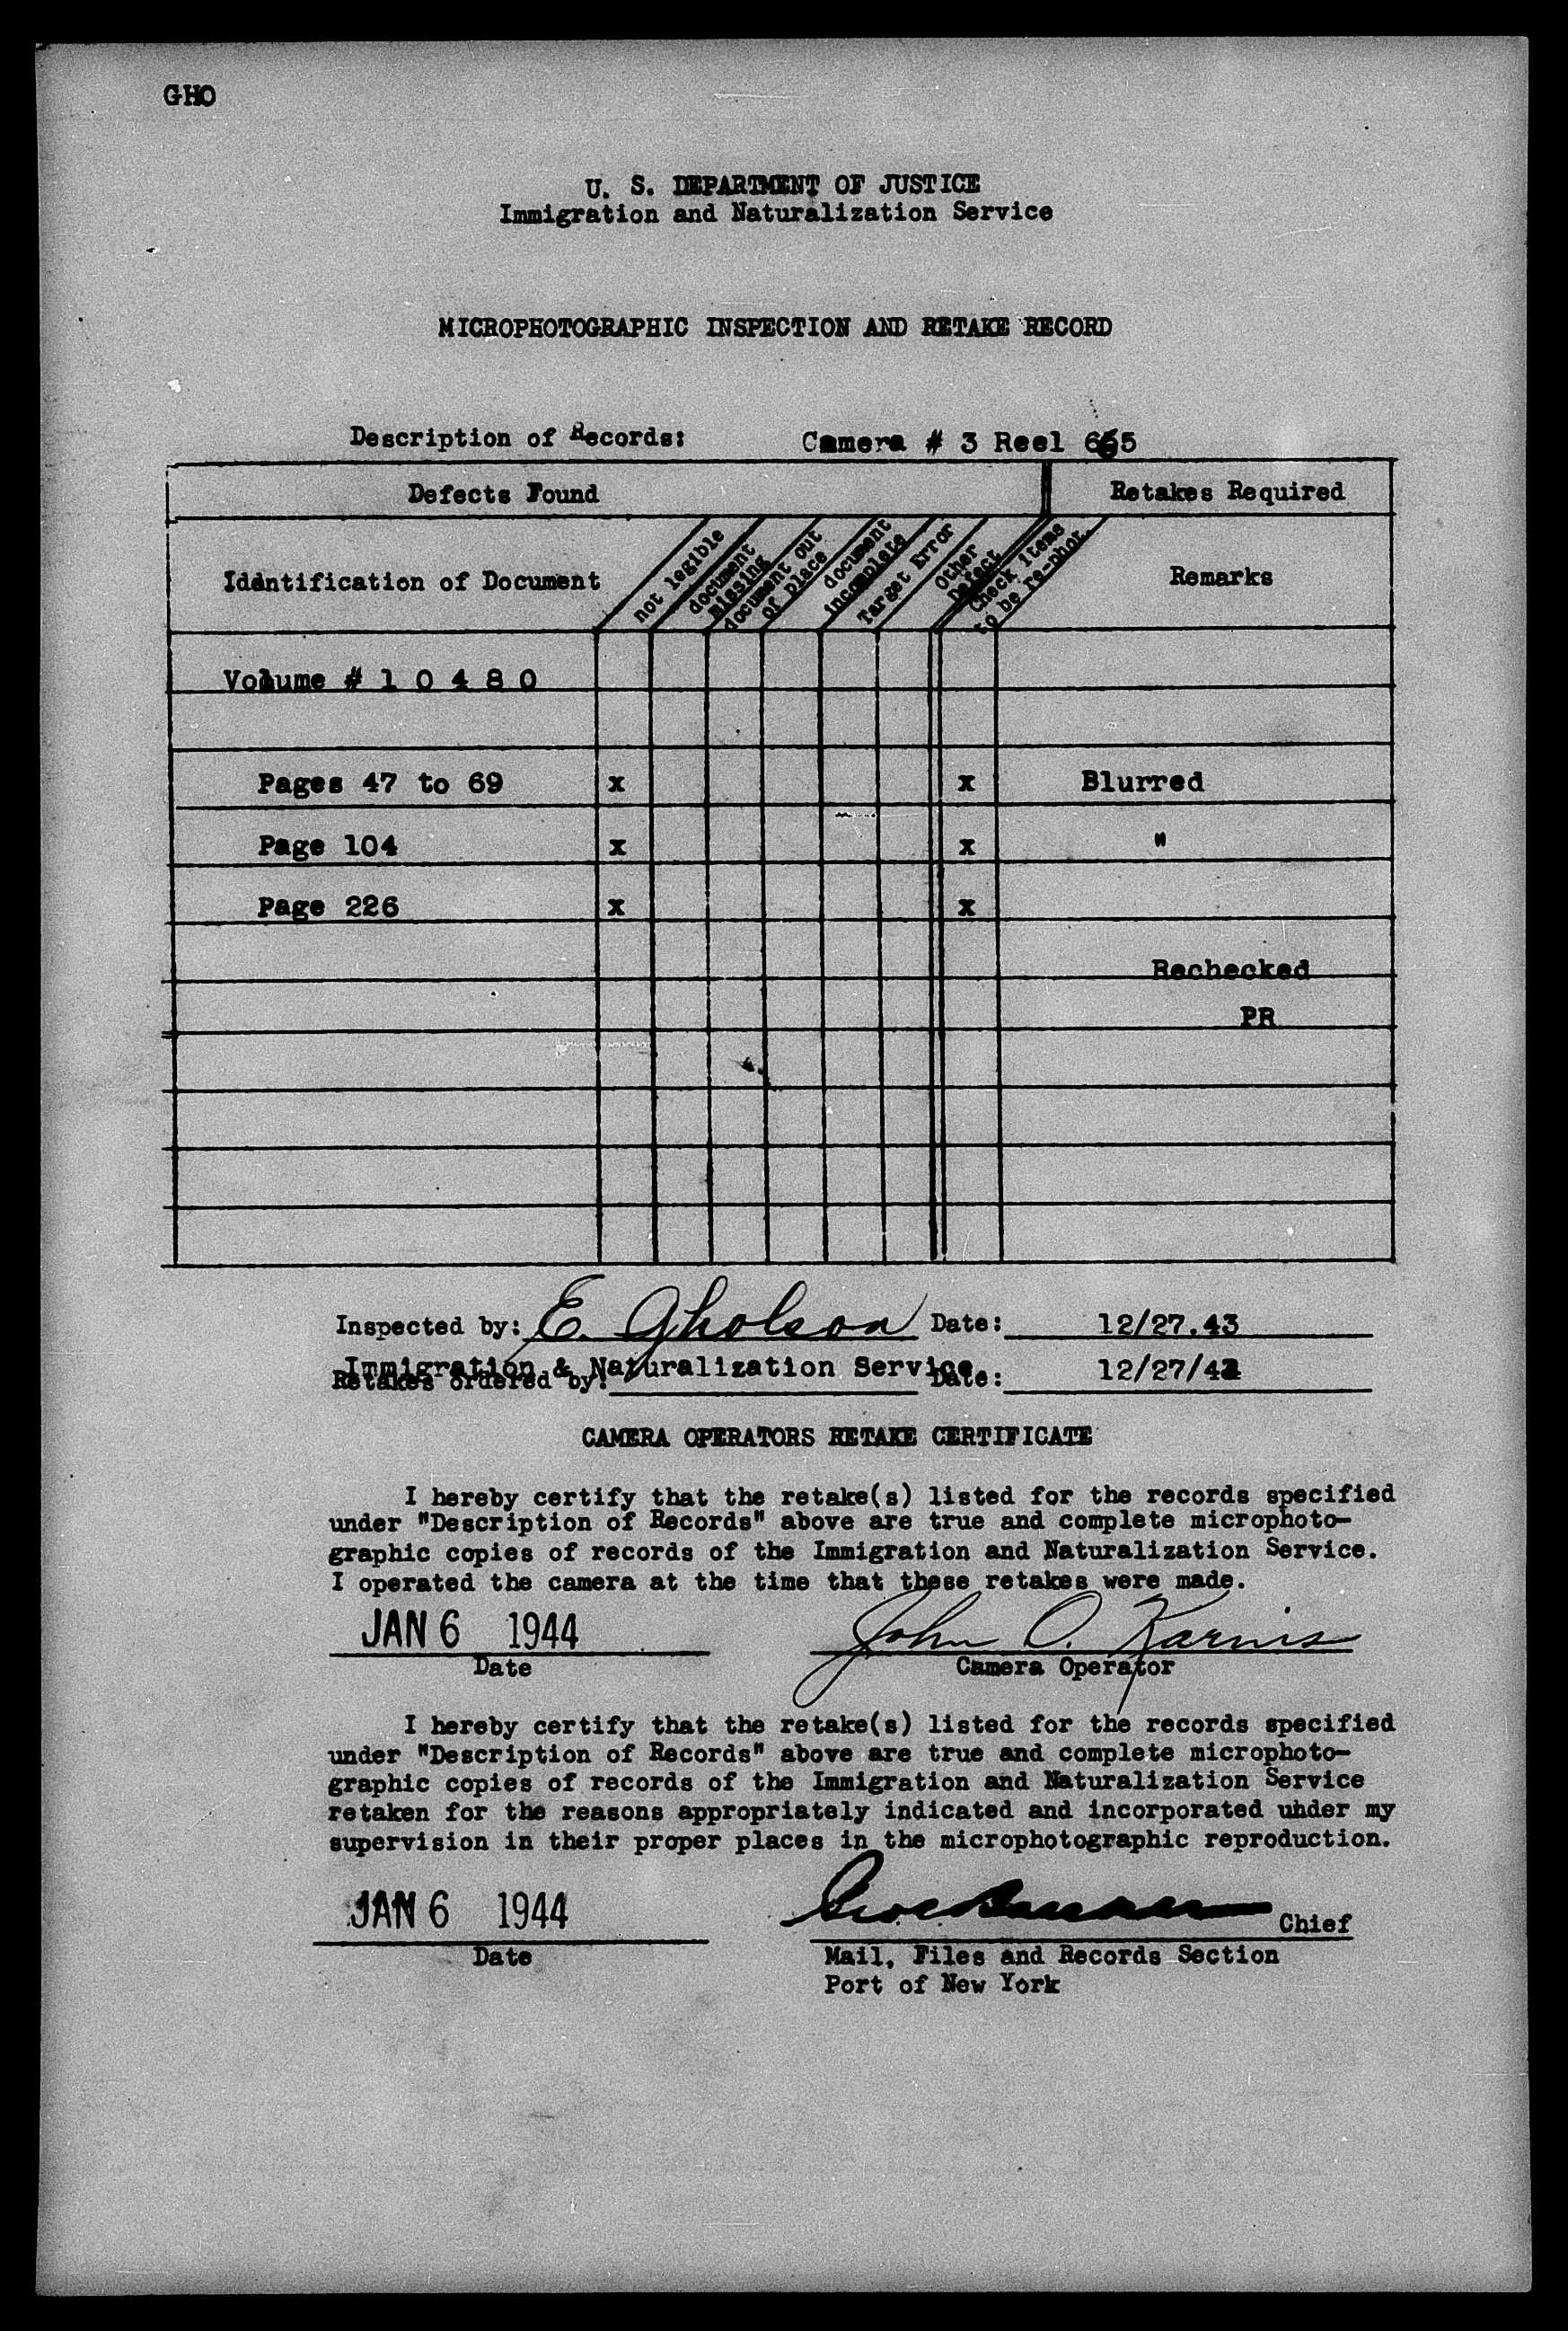 GHO
U. S. DEPARTMENT OF JUSTICE
Immigration and Naturalization Service
MICROPHOTOGRAPHIC INSPECTION AND RETAKE RECORD
Description of Records: Camera # 3 Reel 665
Defects Found Retakes Required
Identification of Document
not legible
document missing
document out of place
document incomplete
Target Error
Other Defect
Check items to be re-phot.
Remarks
Volume # 1 0 4 8 0
Pages 47 to 69 x x Blurred
Page 104 x x "
Page 226 x x
Rechecked
PR
Inspected by: E. Gholson Date: 12/27.43
Immigration & Naturalization Service
Retakes ordered by: Date: 12/27/43
CAMERA OPERATORS RETAKE CERTIFICATE
I hereby certify that the retake(s) listed for the records specified
under "Description of Records" above are true and complete microphoto-
graphic copies of records of the Immigration and Naturalization Service.
I operated the camera at the time that these retakes were made.
JAN 6 1944 John O. Karnis
Date Camera Operator
I hereby certify that the retake(s) listed for the records specified
under "Description of Records" above are true and complete microphoto-
graphic copies of records of the Immigration and Naturalization Service
retaken for the reasons appropriately indicated and incorporated under my
supervision in their proper places in the microphotographic reproduction.
JAN 6 1944 Chief
Date Mail, Files and Records Section
Port of New York